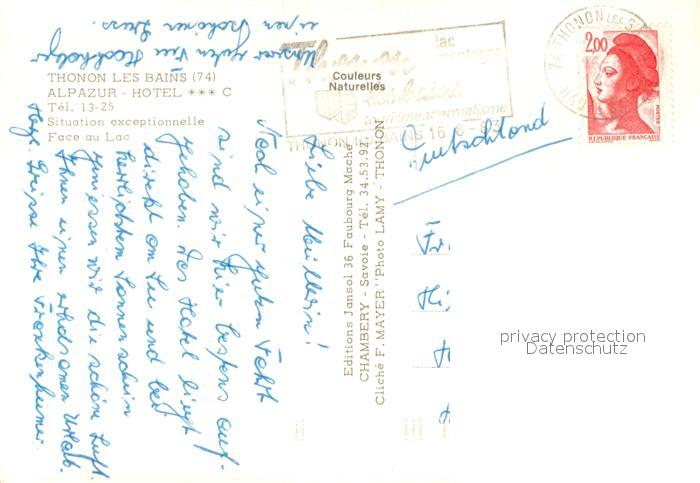 THONON LES BAINS (74)
ALPAZUR - HOTEL *** C
Tél. 13-25
Situation exceptionnelle
Face au Lac
Couleurs
Naturelles
lac
montagne
les bains
tourisme, thermalisme
THONON LES BAINS 16-8-83
74 THONON LES
2,00
POSTES
REPUBLIQUE FRANÇAISE
Deutschland
Editions Jansol 36 Faubourg Maché
CHAMBERY - Savoie - Tél. 34.53.92
Cliché F. MAYER "Photo LAMY - THONON
Liebe Müllerin!
Nach einer guten Fahrt
sind wir hier bestens auf-
gehoben. Das Hotel liegt
direkt am See und bei
herrlichstem Sonnenschein
geniessen wir die schöne Luft.
Ihnen einen erholsamen Urlaub.
Grüsse Ihre Frankenheimer.
Unserer guten Frau
einen schönen Gruss.
Fr
privacy protection
Datenschutz